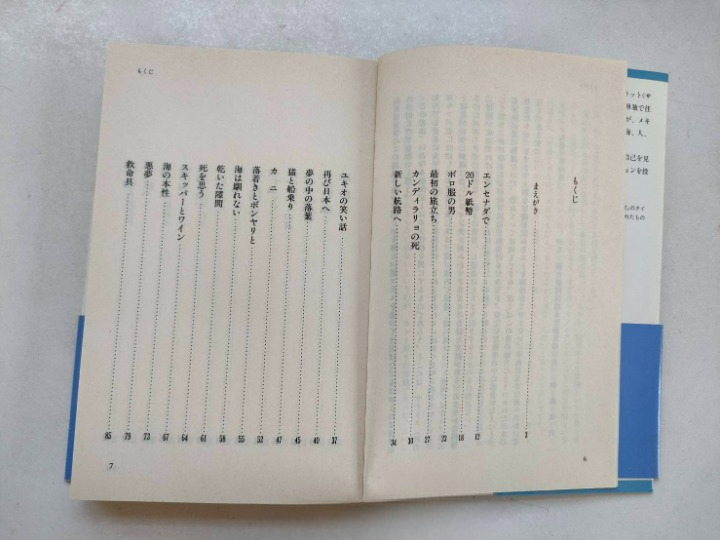 もくじ
まえがき 3
エンセナダで 12
20ドル紙幣 18
ボロ服の男 22
最初の旅立ち 27
カンディラリョの死
新しい航路へ
6
もくじ
ユキオの笑い話 37
再び日本へ 40
夢の中の落葉 45
猫と船乗り 47
カニ 52
落着きとボンヤリと 55
海は馴れない 58
乾いた隙間 61
死を思う 64
スキッパーとワイン 67
海の本性 73
悪夢 79
救命具 85
7